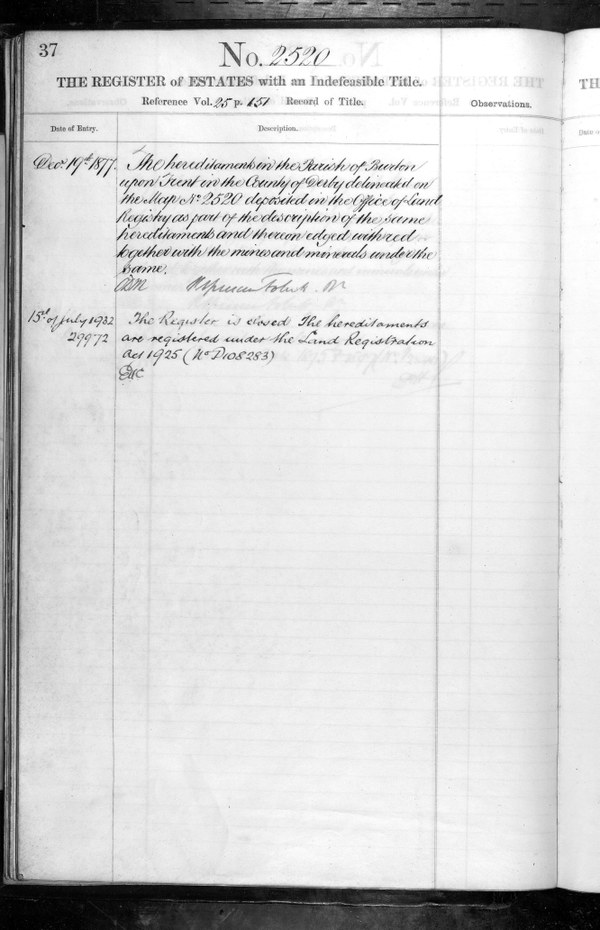 37
No. 2520
THE REGISTER of ESTATES with an Indefeasible Title.
Reference Vol. 25 p. 151 Record of Title.
Observations.
Date of Entry.
Description.
Decr 19th 1877.
The hereditaments in the Parish of Burton
upon Trent in the County of Derby delineated on
the Map No 2520 deposited in the Office of Land
Registry as part of the description of the same
hereditaments and thereon edged with red
together with the mines and minerals under the
same.
15th of July 1932
29972
The Register is closed The hereditaments
are registered under the Land Registration
Act 1925 (No D108283)
TH